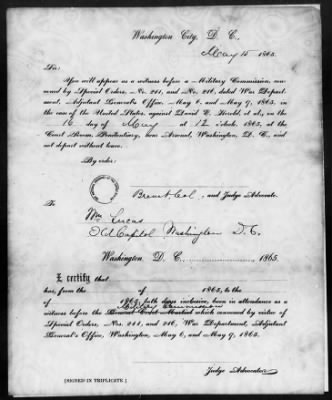 Washington City, D. C.
May 15 1865.
Sir:
You will appear as a witness before a Military Commission, con-
vened by Special Orders, Nos. 211, and No. 216, dated War Depart-
ment, Adjutant General's Office, May 6, and May 9, 1865, in
the case of the United States, against David E. Herold, et al., on the
16 day of May at 12 o'clock, 1865, at the
Court Room, Penitentiary, near Arsenal, Washington, D. C., and
not depart without leave.
By order:
Brevet Col, and Judge Advocate.
To
Wm Lucas
Old Capitol Washington D. C.
Washington, D. C., 1865.
I certify that
has, from the of 1865, to the
of 1865, both days inclusive, been in attendance as a
Military Commission
witness before the General Court Martial which convened by virtue of
Special Orders, Nos. 211, and 216, War Department, Adjutant
General's Office, Washington, May 6, and May 9, 1865.
Judge Advocate
[SIGNED IN TRIPLICATE.]